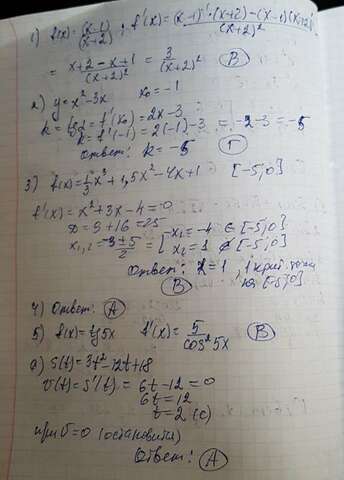 1) f(x) = (x-1)/(x+2); f'(x) = ((x-1)'·(x+2) - (x-1)(x+2)')/(x+2)²
= (x+2-x+1)/(x+2)² = 3/(x+2)² (В)
2) y = x² - 3x x₀ = -1
k = tgα = f'(x₀) = 2x - 3
k = f'(-1) = 2(-1) - 3 = -2 - 3 = -5
Ответ: k = -5 (Г)
3) f(x) = 1/3 x³ + 1,5x² - 4x + 1 [-5;0]
f'(x) = x² + 3x - 4 = 0
D = 9 + 16 = 25
x₁,₂ = (-3±5)/2 = [x₁ = -4 ∈ [-5;0]
x₂ = 1 ∉ [-5;0]
Ответ: 1 крит. точка
на [-5;0]
(В)
4) Ответ: (А)
5) f(x) = tg5x f'(x) = 5/cos²5x (В)
S(t) = 3t² - 12t + 18
v(t) = S'(t) = 6t - 12 = 0
6t = 12
t = 2 (с)
при v = 0 (остановится)
Ответ: (А)